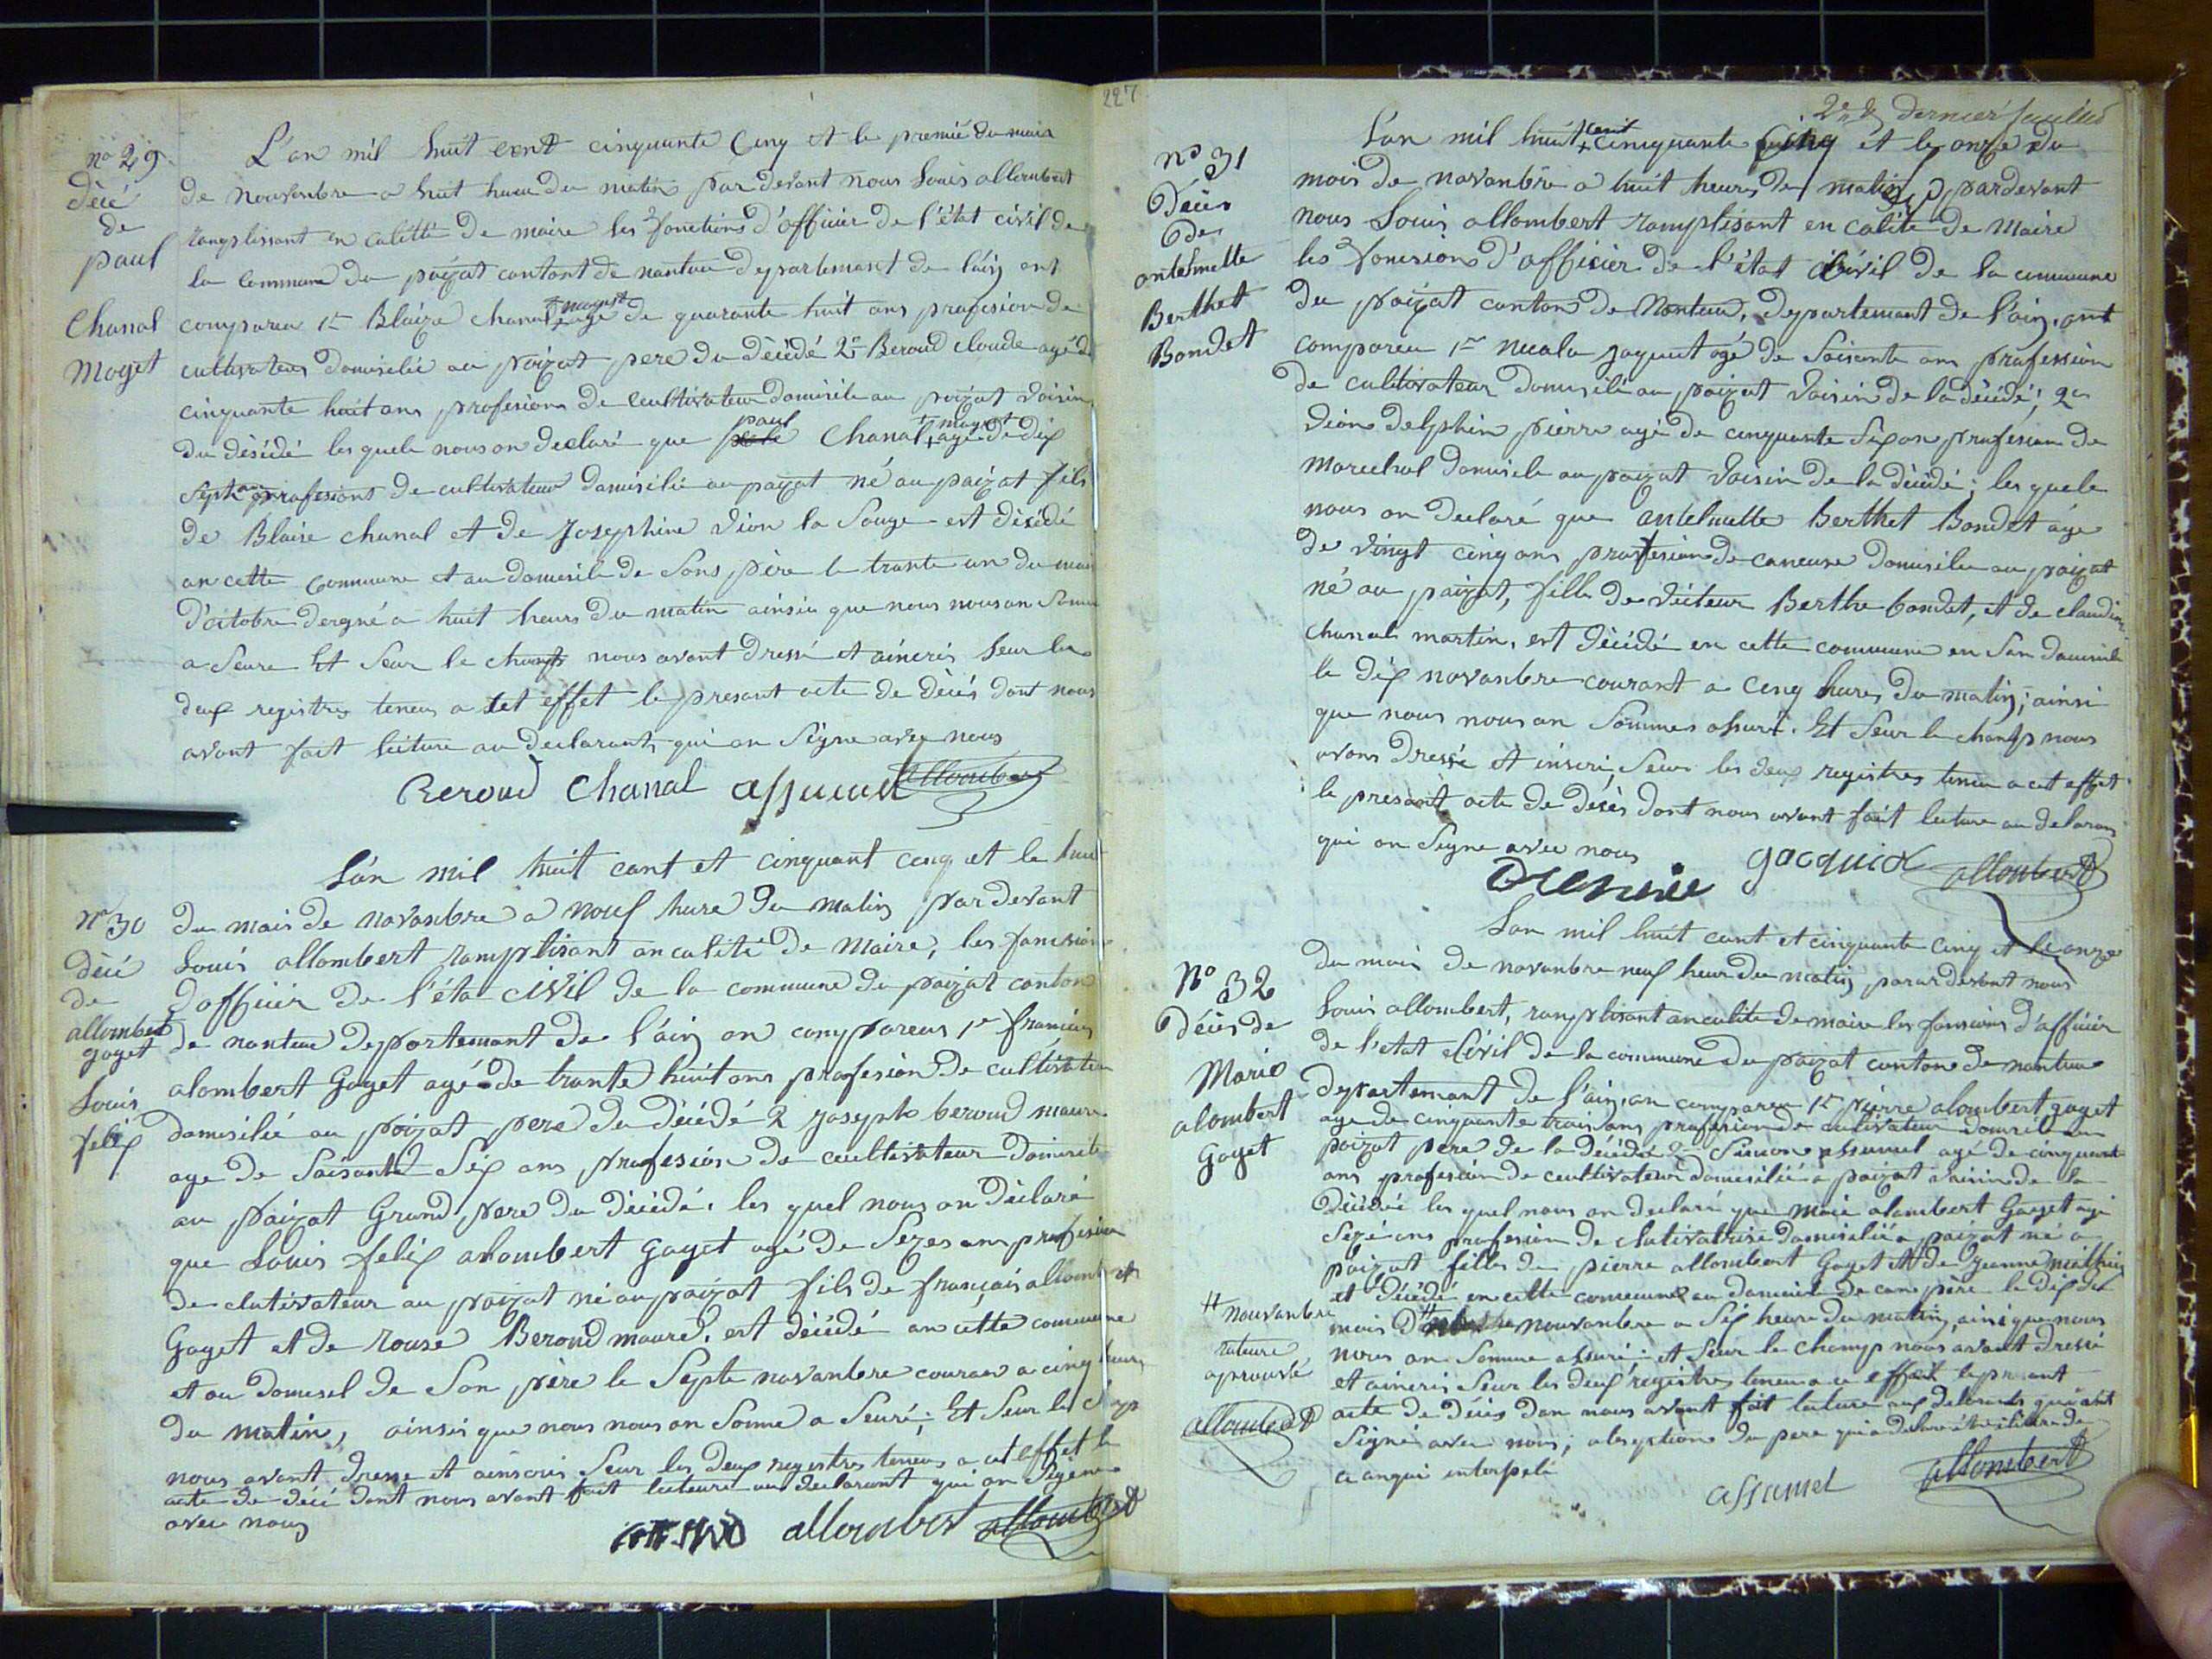 227
no 29.
décé
de
paul
Chanal
moget
L'an mil huit cent cinquante Cinq et le premié du mois
de nouvenbre a huit heure du matin par devant nous Louis allombert
ranplissant en calitté de maire les fonctions d'officier de l'état civil de
la commune du poizat cantont de nantua departement de l'ain ont
comparu 1er Blaize chanal + moget agé de quarante huit ans profesion de
cultivateur domicilié au poizat pere du décédé 2e Beroud claude agé de
cinquante huit ans profesion de cultivateur domicile au poizat voisin
du désédé les quels nous on declaré que paul Chanal + moget agé de dix
sept ans profesions de cultivateur domicilié au poizat né au poizat fils
de Blaise chanal et de Josephine vion la Souge est décédé
an cette commune et au domicile de Sons père le trante un du mois
d'octobre dergné a huit heurs du matin ainsin que nous nous an Somme
a Seure Et Seur le champ nous avont dressé et aincris Seur les
deux registres teneus a cet effet le presant acte de décés dont nous
avont fait lecture au declarants qui on Signe avec nous
Beroud Chanal assumel allombert
no 30
décé
de
allombert
goyet
Louis
felix
L'an mil huit cant et cinquant cinq et le huit
du mois de novanbre a nouf hure du matin par devant
Louis allombert ramplisant an calité de maire, les fonction
d'officier de l'état civil de la commune du poizat canton
de nantua departemant de l'ain on compareus 1er francois
alombert Goyet agé de trante huit ans profesion de cultivateur
domicilié au poizat pere du décédé 2 joseph beroud maure
age de Soisante Six ans profesion de ceultivateur domicile
au poizat Grand pere du décédé. les quel nous on déclaré
que Louis felix alombert goyet agé de Sezes ans profesion
de clutivateur au poizat né au poizat fils de français allombert
Goyet et de rouse Beroud maure, est décédé an cette commune
et au domicil de Son père le Septe novanbre couran a cinq heure
du matin, ainsis que nous nous an Somme a Seuré; Et Seur le champ
nous avont dresse et ainscris Seur les deux registres teneus a cet effet le
acte de décé dont nous avont fait lecteure au declarant qui on Signe
avec nous
allombert allombert
2e et dernier feuillet
no 31
Décés
de
antelmette
Berthet
Bondet
L'an mil huit + cent cinquante Cinq et le onze du
mois de novanbre a huit heures de matin pardevant
nous Louis allombert ramplisant en calité de Maire
les foncsions d'officier de l'état civil de la commune
du poizat canton de Nantua, departemant de l'ain, ont
compareu 1er nicola jaquet agé de Soisante ans profession
de cultivateur domicilé au poizat voisin de la décédé; 2e
vion delphin pierre agé de cinquante Six an profesion de
marechal domicile au poizat voisin de la décédé; les quels
nous on declaré que antelmette Berthet Bondet age
de vingt cinq ans profesion de caneuse domicilie au poizat
né au poizat, fille de victeur Berthe bondet, et de claudine
chanal martin, est décédé en cette commune en San domicile
le dix novanbre courant a cinq hures du matin; ainsi
que nous nous an Sommes assuré. Et Seur le champ nous
avons dressé et inscri, Seur les deux registres teneu a cet effet
le presant acte de décès dont nous avont fait lecture au delarans
qui on Signe avec nous
jacquiot allombert
No 32
Décés de
Marie
alombert
Goyet
L'an mil huit cant et cinquante cinq et le onze
du mois de novanbre neuf heur du matin, parardevant nous
Louis allombert, ramplisant an calité de maire les fonscions d'officier
de l'etat civil de la commune du poizat canton de nantua
departemant de l'ain, on compareu 1er pierre alombert goyet
age de cinquante trois ans profesion de cultivateur domicile au
poizat pere de la décédé 2e Simon assumel agé de cinquante
ans profesion de ceultivateur domicilié a poizat voisin de la
décédé les quel nous on declaré que marie alombert Goyet age
Sezé ans profesion de clutivatrise domicilié a poizat né a
poizat fille de pierre allombert Goyet et de jeanne
et décédé en cette commune au domicile de son père le dix du
mois d # nouvanbre a Six heure du matin, ainsi que nous
nous an Somme assuré; et Seur le champ nous avont dressé
et aincris Seur les deux registres teneu a ce effait le presant
acte de décés don nous avont fait lecture aux delarants qui ont
Signé avec nous; alseption du pere qui a delaré
a anqui interpelé
# nouvanbre
rateure
aprouvé
allombert
assumel allombert